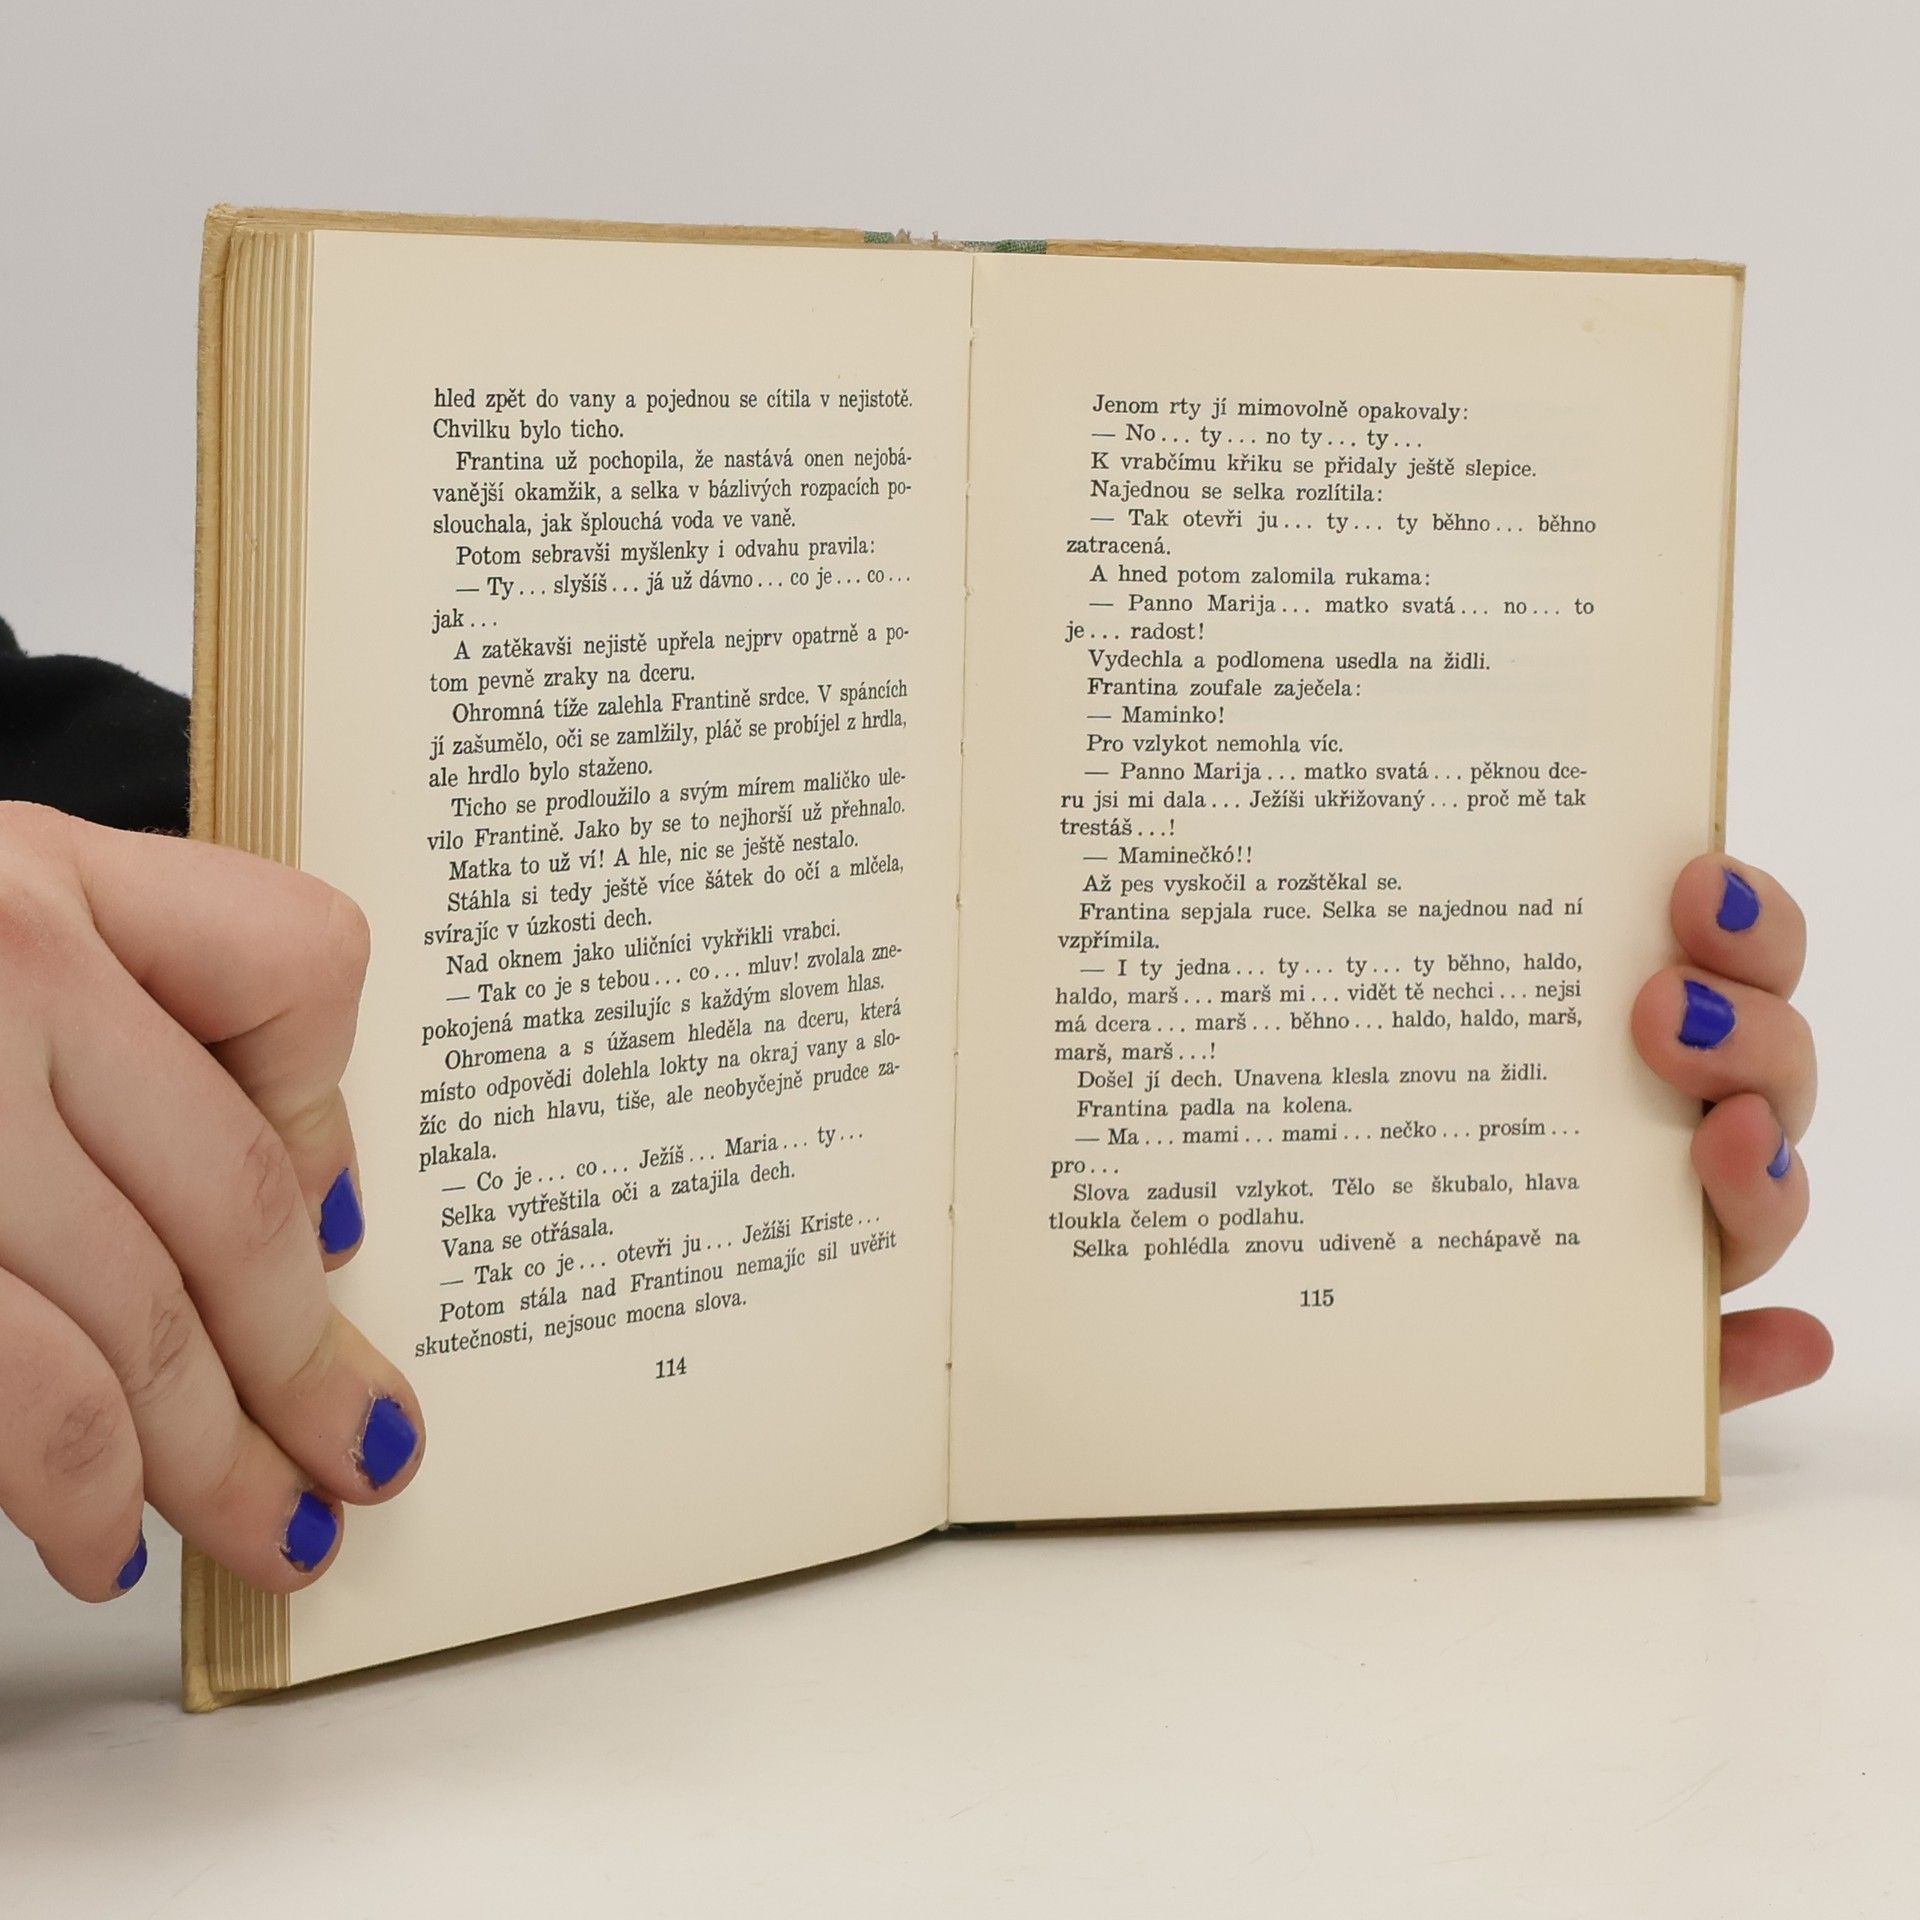 hled zpět do vany a pojednou se cítila v nejistotě.
Chvilku bylo ticho.
Frantina už pochopila, že nastává onen nejobá-
vanější okamžik, a selka v bázlivých rozpacích po-
slouchala, jak šplouchá voda ve vaně.
Potom sebravši myšlenky i odvahu pravila:
— Ty... slyšíš... já už dávno... co je... co...
jak...
A zatěkavši nejistě upřela nejprv opatrně a po-
tom pevně zraky na dceru.
Ohromná tíže zalehla Frantině srdce. V spáncích
jí zašumělo, oči se zamlžily, pláč se probíjel z hrdla,
ale hrdlo bylo staženo.
Ticho se prodloužilo a svým mírem maličko ule-
vilo Frantině. Jako by se to nejhorší už přehnalo.
Matka to už ví! A hle, nic se ještě nestalo.
Stáhla si tedy ještě více šátek do očí a mlčela,
svírajíc v úzkosti dech.
Nad oknem jako uličníci vykřikli vrabci.
— Tak co je s tebou... co... mluv! zvolala zne-
pokojená matka zesilujíc s každým slovem hlas.
Ohromena a s úžasem hleděla na dceru, která
místo odpovědi dolehla lokty na okraj vany a slo-
žíc do nich hlavu, tiše, ale neobyčejně prudce za-
plakala.
— Co je... co... Ježíš... Maria... ty...
Selka vytřeštila oči a zatajila dech.
Vana se otřásala.
— Tak co je... otevři ju... Ježíši Kriste...
Potom stála nad Frantinou nemajíc sil uvěřit
skutečnosti, nejsouc mocna slova.
114
Jenom rty jí mimovolně opakovaly:
— No... ty... no ty... ty...
K vrabčímu křiku se přidaly ještě slepice.
Najednou se selka rozlítila:
— Tak otevři ju... ty... ty běhno... běhno
zatracená.
A hned potom zalomila rukama:
— Panno Marija... matko svatá... no... to
je... radost!
Vydechla a podlomena usedla na židli.
Frantina zoufale zaječela:
— Maminko!
Pro vzlykot nemohla víc.
— Panno Marija... matko svatá... pěknou dce-
ru jsi mi dala... Ježíši ukřižovaný... proč mě tak
trestáš...!
— Maminečkó!!
Až pes vyskočil a rozštěkal se.
Frantina sepjala ruce. Selka se najednou nad ní
vzpřímila.
— I ty jedna... ty... ty... ty běhno, haldo,
haldo, marš... marš mi... vidět tě nechci... nejsi
má dcera... marš... běhno... haldo, haldo, marš,
marš, marš...!
Došel jí dech. Unavena klesla znovu na židli.
Frantina padla na kolena.
— Ma... mami... mami... nečko... prosím...
pro...
Slova zadusil vzlykot. Tělo se škubalo, hlava
tloukla čelem o podlahu.
Selka pohlédla znovu udiveně a nechápavě na
115